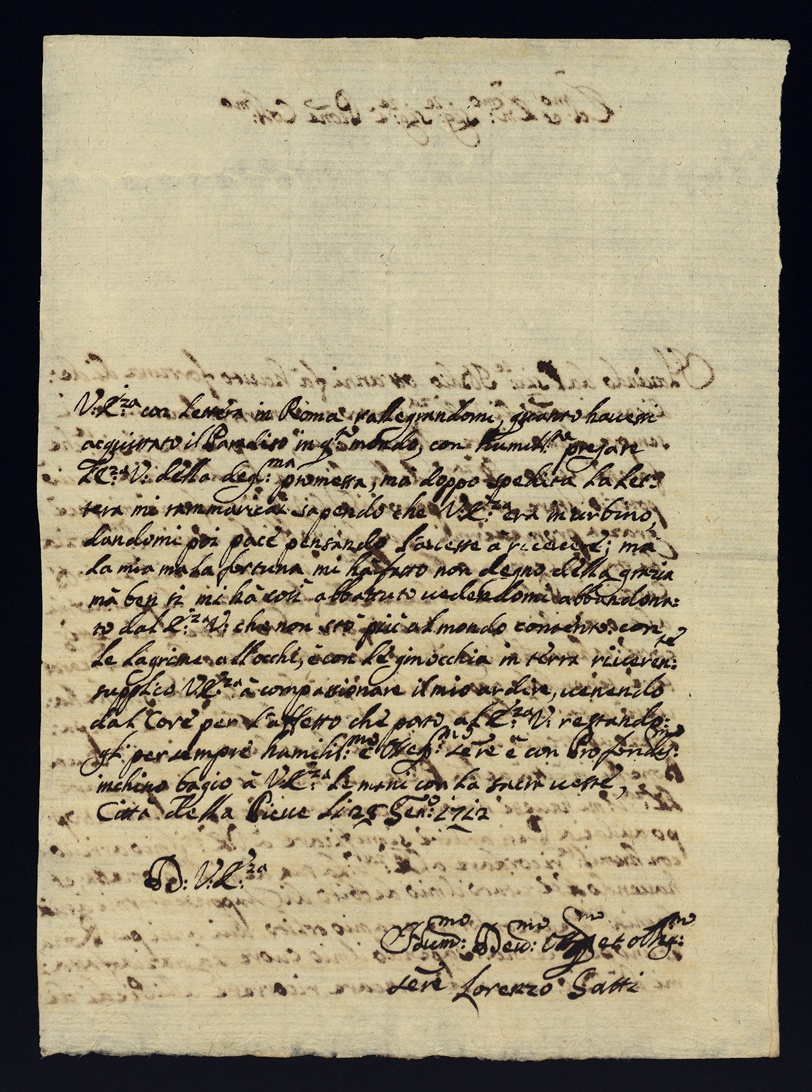 V: E:za con lettera in Roma rallegrandomi, quanto havesse
acquistato il Paradiso in q:to mondo, con humil:tà pregare
l'E:za V: della deg:ma promessa, ma doppo spedita la let:
tera mi rammaricai sapendo che V: E:za era in urbino,
dandomi poi pace pensando l'avesse a ricevere; ma
la mia mala fortuna mi hà fatto non degno della grazia
mà ben si mi hà così abbattuto vedendomi abbandona:
to dal E:za V: che non stò più al mondo contento. con
le lagrime all'occhi, è con le ginocchia in terra riveren:te
supplico V: E:za à compassionare il mio ardire, venendo
dal Core per l'affetto che porto, al E:za V: restando:
gli per sempre humilis:mo è Osseq:mo sere è con Profondis:mo
inchino bagio à V: E:za le mani con la sacra veste,
Città della Pieve li 25 Gen:o 1712
D: V: E:za
Hum:mo Dev:mo et obblig:mo
sere Lorenzo Gatti